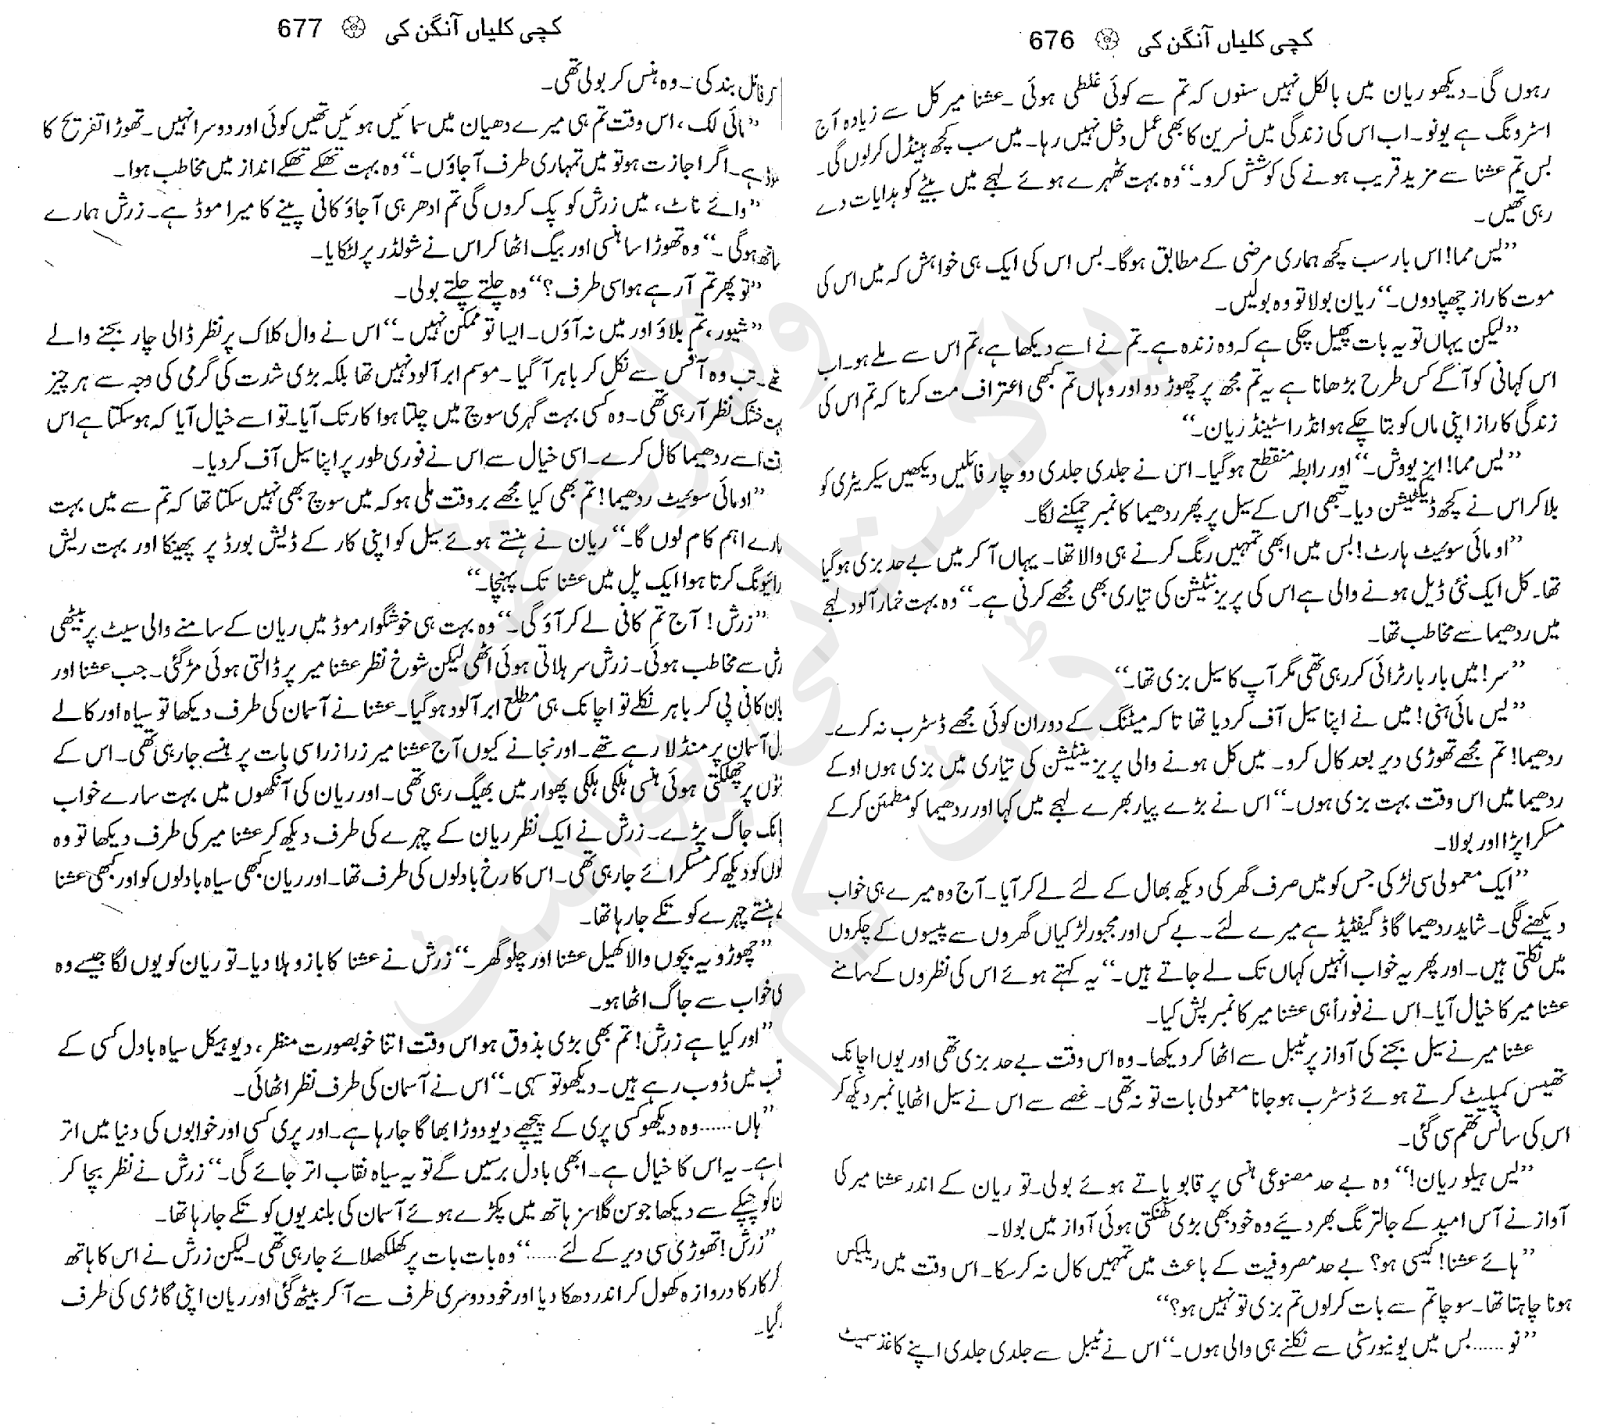 کچی کلیاں آنگن کی 676
رہوں گی۔ دیکھو ریان میں بالکل نہیں سنوں کہ تم سے کوئی غلطی ہوئی۔ عشنا میر کل سے زیادہ آج
اسٹرونگ ہے یونو۔ اب اس کی زندگی میں نسرین کا بھی عمل دخل نہیں رہا۔ میں سب کچھ ہینڈل کرلوں گی۔
بس تم عشنا سے مزید قریب ہونے کی کوشش کرو۔‘‘ وہ بہت ٹھہرے ہوئے لہجے میں بیٹے کو ہدایات دے
رہی تھیں۔
’’یس مما! اس بار سب کچھ ہماری مرضی کے مطابق ہوگا۔ بس اس کی ایک ہی خواہش کہ میں اس کی
موت کا راز چھپا دوں۔‘‘ ریان بولا تو وہ بولیں۔
’’لیکن یہاں تو یہ بات پھیل چکی ہے کہ وہ زندہ ہے۔ تم نے اسے دیکھا ہے، تم اس سے ملے ہو۔ اب
اس کہانی کو آگے کس طرح بڑھانا ہے یہ تم مجھ پر چھوڑ دو اور وہاں تم کبھی اعتراف مت کرنا کہ تم اس کی
زندگی کا راز اپنی ماں کو بتا چکے ہو انڈر اسٹینڈ ریان۔‘‘
’’یس مما! ایز یو وش۔‘‘ اور رابطہ منقطع ہوگیا۔ اس نے جلدی جلدی دو چار فائلیں دیکھیں سیکریٹری کو
بلا کر اس نے کچھ ڈیکٹیشن دیا۔ تبھی اس کے سیل پر پھر ردھیما کا نمبر چمکنے لگا۔
’’او مائی سوئیٹ ہارٹ! بس میں ابھی تمہیں رنگ کرنے ہی والا تھا۔ یہاں آکر میں بے حد بزی ہوگیا
تھا۔ کل ایک نئی ڈیل ہونے والی ہے اس کی پریزنٹیشن کی تیاری بھی مجھے کرنی ہے۔‘‘ وہ بہت خمار آلود لہجے
میں ردھیما سے مخاطب تھا۔
’’سر! میں بار بار ٹرائی کر رہی تھی مگر آپ کا سیل بزی تھا۔‘‘
’’یس مائی ہنی! میں نے اپنا سیل آف کردیا تھا تاکہ میٹنگ کے دوران کوئی مجھے ڈسٹرب نہ کرے۔
ردھیما! تم مجھے تھوڑی دیر بعد کال کرو۔ میں کل ہونے والی پریزینٹیشن کی تیاری میں بزی ہوں اوکے
ردھیما میں اس وقت بہت بزی ہوں۔‘‘ اس نے بڑے پیار بھرے لہجے میں کہا اور ردھیما کو مطمئن کرکے
مسکرا پڑا اور بولا۔
’’ایک معمولی سی لڑکی جس کو میں صرف گھر کی دیکھ بھال کے لئے لے کر آیا۔ آج وہ میرے ہی خواب
دیکھنے لگی۔ شاید ردھیما گاڈ گیفٹیڈ ہے میرے لئے۔ بے کس اور مجبور لڑکیاں گھروں سے پیسوں کے چکروں
میں نکلتی ہیں۔ اور پھر یہ خواب انہیں کہاں تک لے جاتے ہیں۔‘‘ یہ کہتے ہوئے اس کی نظروں کے سامنے
عشنا میر کا خیال آیا۔ اس نے فوراً ہی عشنا میر کا نمبر پش کیا۔
عشنا میر نے سیل بجنے کی آواز پر ٹیبل سے اٹھا کر دیکھا۔ وہ اس وقت بے حد بزی تھی اور یوں اچانک
تھیسس کمپلیٹ کرتے ہوئے ڈسٹرب ہوجانا معمولی بات تو نہ تھی۔ غصے سے اس نے سیل اٹھایا نمبر دیکھ کر
اس کی سانس تھم سی گئی۔
’’یس ہیلو ریان!‘‘ وہ بے حد مصنوعی ہنسی پر قابو پاتے ہوئے بولی۔ تو ریان کے اندر عشنا میر کی
آواز نے آس امید کے جلترنگ بھر دیئے وہ خود بھی بڑی کھنکتی ہوئی آواز میں بولا۔
’’ہائے عشنا! کیسی ہو؟ بے حد مصروفیت کے باعث میں تمہیں کال نہ کرسکا۔ اس وقت میں ریلیکس
ہونا چاہتا تھا۔ سوچا تم سے بات کرلوں تم بزی تو نہیں ہو؟‘‘
’’نو...... بس میں یونیورسٹی سے نکلنے ہی والی ہوں۔‘‘ اس نے ٹیبل سے جلدی جلدی اپنے کاغذ سمیٹ
کچی کلیاں آنگن کی 677
کر فائل بند کی۔ وہ ہنس کر بولی تھی۔
’’مائی لک، اس وقت تم ہی میرے دھیان میں سمائیں ہوئیں تھیں کوئی اور دوسرا نہیں۔ تھوڑا تفریح کا
موڈ ہے۔ اگر اجازت ہو تو میں تمہاری طرف آجاؤں۔‘‘ وہ بہت تھکے تھکے انداز میں مخاطب ہوا۔
’’وائے ناٹ، میں زرش کو پک کروں گی تم ادھر ہی آجاؤ کافی پینے کا میرا موڈ ہے۔ زرش ہمارے
ساتھ ہوگی۔‘‘ وہ تھوڑا سا ہنسی اور بیگ اٹھا کر اس نے شولڈر پر لٹکایا۔
’’تو پھر تم آرہے ہو اسی طرف؟‘‘ وہ چلتے چلتے بولی۔
’’شیور، تم بلاؤ اور میں نہ آؤں۔ ایسا تو ممکن نہیں۔‘‘ اس نے وال کلاک پر نظر ڈالی چار بجنے والے
تھے۔ تب وہ آفس سے نکل کر باہر آگیا۔ موسم ابر آلود نہیں تھا بلکہ بڑی شدت کی گرمی کی وجہ سے ہر چیز
خشک نظر آرہی تھی۔ وہ کسی بہت گہری سوچ میں چلتا ہوا کار تک آیا۔ تو اسے خیال آیا کہ ہوسکتا ہے اس
وقت اسے ردھیما کال کرے۔ اسی خیال سے اس نے فوری طور پر اپنا سیل آف کردیا۔
’’او مائی سوئیٹ ردھیما! تم بھی کیا مجھے بر وقت ملی ہو کہ میں سوچ بھی نہیں سکتا تھا کہ تم سے میں بہت
سارے اہم کام لوں گا۔‘‘ ریان نے ہنستے ہوئے سیل کو اپنی کار کے ڈیش بورڈ پر پھینکا اور بہت ریش
ڈرائیونگ کرتا ہوا ایک پل میں عشنا تک پہنچا۔‘‘
’’زرش! آج تم کافی لے کر آؤ گی۔‘‘ وہ بہت ہی خوشگوار موڈ میں ریان کے سامنے والی سیٹ پر بیٹھی
زرش سے مخاطب ہوئی۔ زرش سر ہلاتی ہوئی اٹھی لیکن شوخ نظر عشنا میر پر ڈالتی ہوئی مڑ گئی۔ جب عشنا اور
ریان کافی پی کر باہر نکلے تو اچانک ہی مطلع ابر آلود ہوگیا۔ عشنا نے آسمان کی طرف دیکھا تو سیاہ اور کالے
بادل آسمان پر منڈلا رہے تھے۔ اور نجانے کیوں آج عشنا میر زرا زرا سی بات پر ہنسے جارہی تھی۔ اس کے
ہونٹوں پر چھلکتی ہوئی ہنسی ہلکی ہلکی پھوار میں بھیگ رہی تھی۔ اور ریان کی آنکھوں میں بہت سارے خواب
اچانک جاگ پڑے۔ زرش نے ایک نظر ریان کے چہرے کی طرف دیکھ کر عشنا میر کی طرف دیکھا تو وہ
بادلوں کو دیکھ کر مسکرائے جارہی تھی۔ اس کا رخ بادلوں کی طرف تھا۔ اور ریان کبھی سیاہ بادلوں کو اور کبھی عشنا
کے ہنستے چہرے کو تکے جارہا تھا۔
’’چھوڑو یہ بچوں والا کھیل عشنا اور چلو گھر۔‘‘ زرش نے عشنا کا بازو ہلا دیا۔ تو ریان کو یوں لگا جیسے وہ
کسی خواب سے جاگ اٹھا ہو۔
’’اور کیا ہے زرش! تم بھی بڑی بدذوق ہو اس وقت اتنا خوبصورت منظر، دیو ہیکل سیاہ بادل کسی کے
میں ڈوب رہے ہیں۔ دیکھو تو سہی۔‘‘ اس نے آسمان کی طرف نظر اٹھائی۔
’’ہاں...... وہ دیکھو کسی پری کے پیچھے دیو دوڑا بھاگا جارہا ہے۔ اور پری کسی اور خوابوں کی دنیا میں اتر
ہے۔ یہ اس کا خیال ہے۔ ابھی بادل برسیں گے تو یہ سیاہ نقاب اتر جائے گی۔‘‘ زرش نے نظر بچا کر
ریان کو چپکے سے دیکھا جو سن گلاسز ہاتھ میں پکڑے ہوئے آسمان کی بلندیوں کو تکے جارہا تھا۔
’’زرش! تھوڑی سی دیر کے لئے.....‘‘ وہ بات بات پر کھلکھلائے جارہی تھی۔ لیکن زرش نے اس کا ہاتھ
کر کار کا دروازہ کھول کر اندر دھکا دیا اور خود دوسری طرف سے آکر بیٹھ گئی اور ریان اپنی گاڑی کی طرف
گیا۔